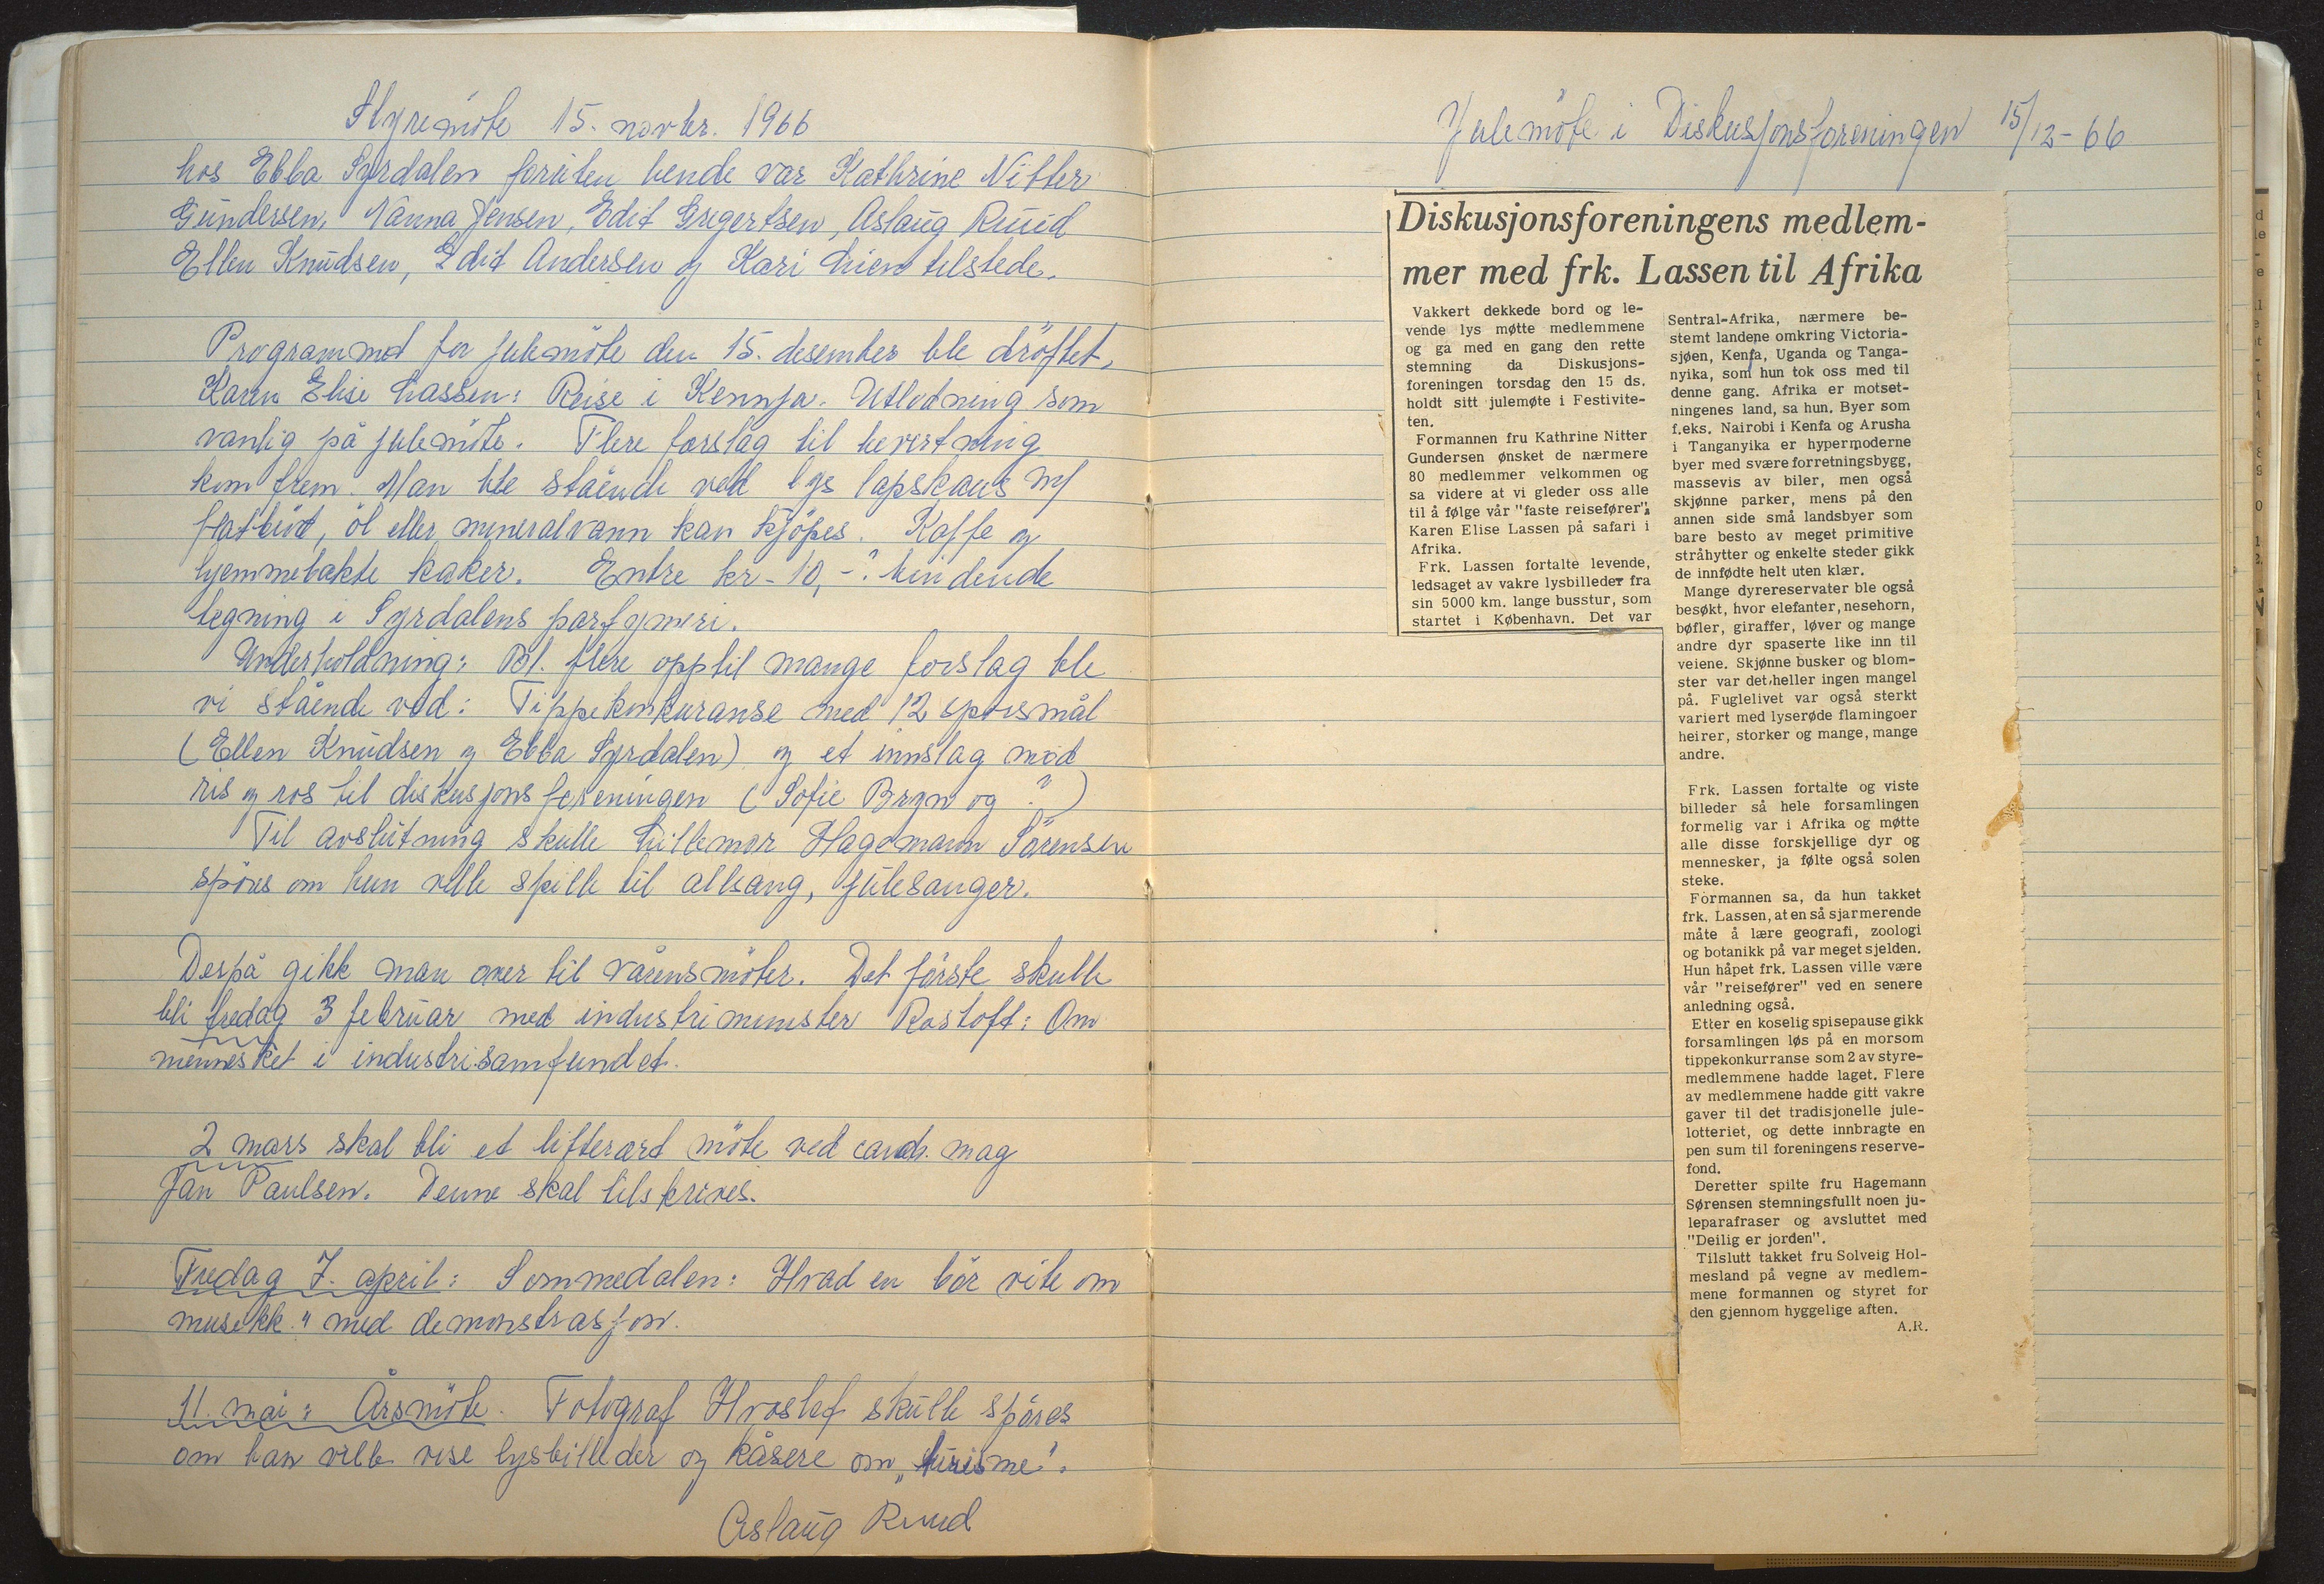 Styremöte 15. novbr. 1966
hos Ebba Syrdalen foruten hende var Kathrine Nitter
Gundersen, Nanna Jensen, Edit Gregertsen, Aslaug Ruud
Ellen Knudsen, Edit Andersen og Kari Lien tilstede.
Programmet for julemöte den 15. desember ble dröftet.
Karen Elise Lassen: Reise i Kennja. Utlodning som
vanlig på julemöte. Flere forslag til bevertning
kom frem. Man ble stående ved lys lapskaus m/
flatbröt, öl eller mineralvann kan kjöpes. Kaffe og
hjemmebakte kaker. Entre kr - 10,-. bindende
tegning i Syrdalens parfymeri.
Underholdning: Bl. flere opptil mange forslag ble
vi stående ved: Tippekonkuranse med 12 spörsmål
(Ellen Knudsen og Ebba Syrdalen) og et innslag med
ris og ros til diskusjonsforeningen (Sofie Bryn og ?)
Til avslutning skulle Lillemor Hagemann Sörensen
spöres om hun ville spille til allsang, julesanger.
Derpå gikk man over til vårens möter. Det förste skulle
bli fredag 3 februar med industriminister Rostoft: Om
mennesket i industrisamfundet.
2 mars skal bli et litterært möte ved cand. mag
Jan Paulsen. Denne skal tilskrives.
Fredag 7. april: Sommedalen: Hvad en bör vite om
musikk" med demonstrasjon.
11. mai: Årsmöte. Fotograf Hvoslef skulle spöres
om han ville vise lysbilleder og kåsere om „turisme".
Aslaug Ruud
Julemöte i Diskusjonsforeningen 15/12-66
Diskusjonsforeningens medlem-
mer med frk. Lassen til Afrika
Vakkert dekkede bord og le-
vende lys møtte medlemmene
og ga med en gang den rette
stemning da Diskusjons-
foreningen torsdag den 15 ds.
holdt sitt julemøte i Festivite-
ten.
Formannen fru Kathrine Nitter
Gundersen ønsket de nærmere
80 medlemmer velkommen og
sa videre at vi gleder oss alle
til å følge vår "faste reisefører",
Karen Elise Lassen på safari i
Afrika.
Frk. Lassen fortalte levende,
ledsaget av vakre lysbilleder fra
sin 5000 km. lange busstur, som
startet i København. Det var
Sentral-Afrika, nærmere be-
stemt landene omkring Victoria-
sjøen, Kenfa, Uganda og Tanga-
nyika, som hun tok oss med til
denne gang. Afrika er motset-
ningenes land, sa hun. Byer som
f.eks. Nairobi i Kenfa og Arusha
i Tanganyika er hypermoderne
byer med svære forretningsbygg,
massevis av biler, men også
skjønne parker, mens på den
annen side små landsbyer som
bare besto av meget primitive
stråhytter og enkelte steder gikk
de innfødte helt uten klær.
Mange dyrereservater ble også
besøkt, hvor elefanter, nesehorn,
bøfler, giraffer, løver og mange
andre dyr spaserte like inn til
veiene. Skjønne busker og blom-
ster var det heller ingen mangel
på. Fuglelivet var også sterkt
variert med lyserøde flamingoer
heirer, storker og mange, mange
andre.
Frk. Lassen fortalte og viste
billeder så hele forsamlingen
formelig var i Afrika og møtte
alle disse forskjellige dyr og
mennesker, ja følte også solen
steke.
Formannen sa, da hun takket
frk. Lassen, at en så sjarmerende
måte å lære geografi, zoologi
og botanikk på var meget sjelden.
Hun håpet frk. Lassen ville være
vår "reisefører" ved en senere
anledning også.
Etter en koselig spisepause gikk
forsamlingen løs på en morsom
tippekonkurranse som 2 av styre-
medlemmene hadde laget. Flere
av medlemmene hadde gitt vakre
gaver til det tradisjonelle jule-
lotteriet, og dette innbragte en
pen sum til foreningens reserve-
fond.
Deretter spilte fru Hagemann
Sørensen stemningsfullt noen ju-
leparafraser og avsluttet med
"Deilig er jorden".
Tilslutt takket fru Solveig Hol-
mesland på vegne av medlem-
mene formannen og styret for
den gjennom hyggelige aften.
A.R.